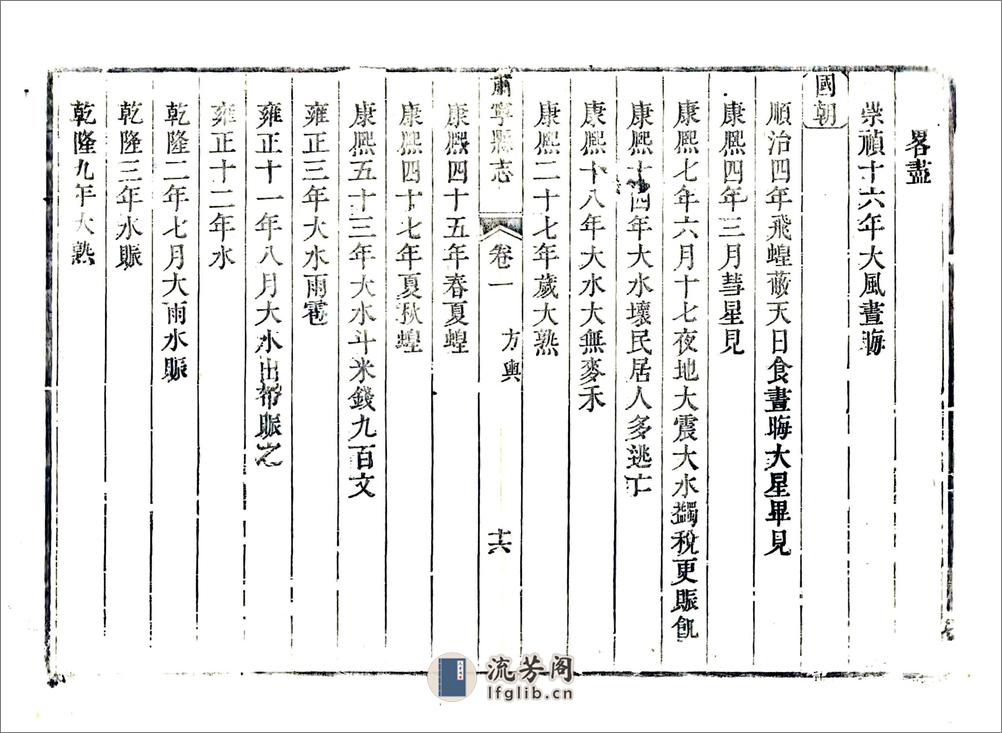 畧盡
崇禎十六年大風晝晦
國朝
順治四年飛蝗蔽天日食晝晦大星畢見
康熈四年三月彗星見
康熈七年六月十七夜地大震大水蠲稅更賑飢
康熈十四年大水壞民居人多逃亡
康熈十八年大水大無麥禾
康熈二十七年歲大熟
肅寧縣志
卷一
方輿
十六
康熈四十五年春夏蝗
康熈四十七年夏秋蝗
康熈五十三年大水斗米錢九百文
雍正三年大水雨雹
雍正十一年八月大水出帑賑之
雍正十二年水
乾隆二年七月大雨水賑
乾隆三年水賑
乾隆九年大熟
流芳阁
lfglib.cn